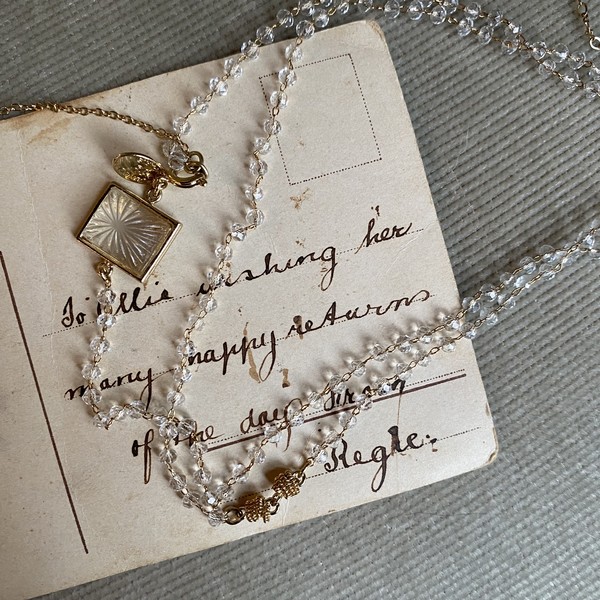 To Ollie wishing her
many happy returns
of the day from
Regle:-